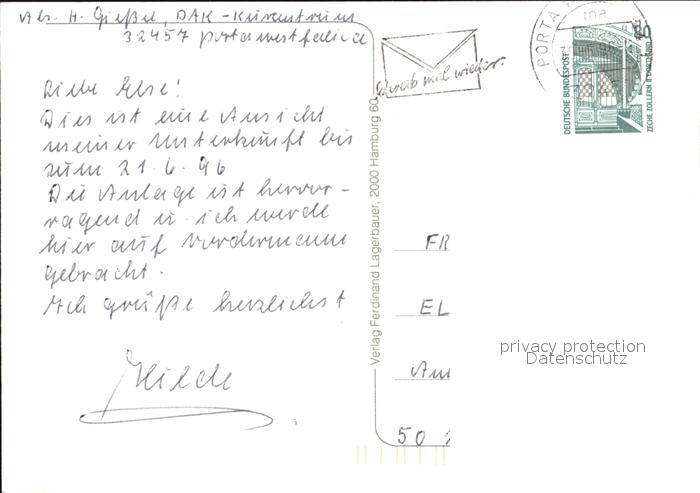 Abs. H. Gießel, DAK-Kurzentrum
32457 Porta westfalica
Liebe Else!
Dies ist eine Ansicht
meiner Unterkunft bis
zum 21.6.96
Die Anlage ist hervor-
ragend u. ich werde
hier auf Vordermann
gebracht.
Ich grüße herzlichst
Hilde
Verlag Ferdinand Lagerbauer, 2000 Hamburg 60
Schreib mal wieder.
PORTA
80
DEUTSCHE BUNDESPOST
ZECHE ZOLLERN II DORTMUND
FR
EL
Am
50
privacy protection
Datenschutz